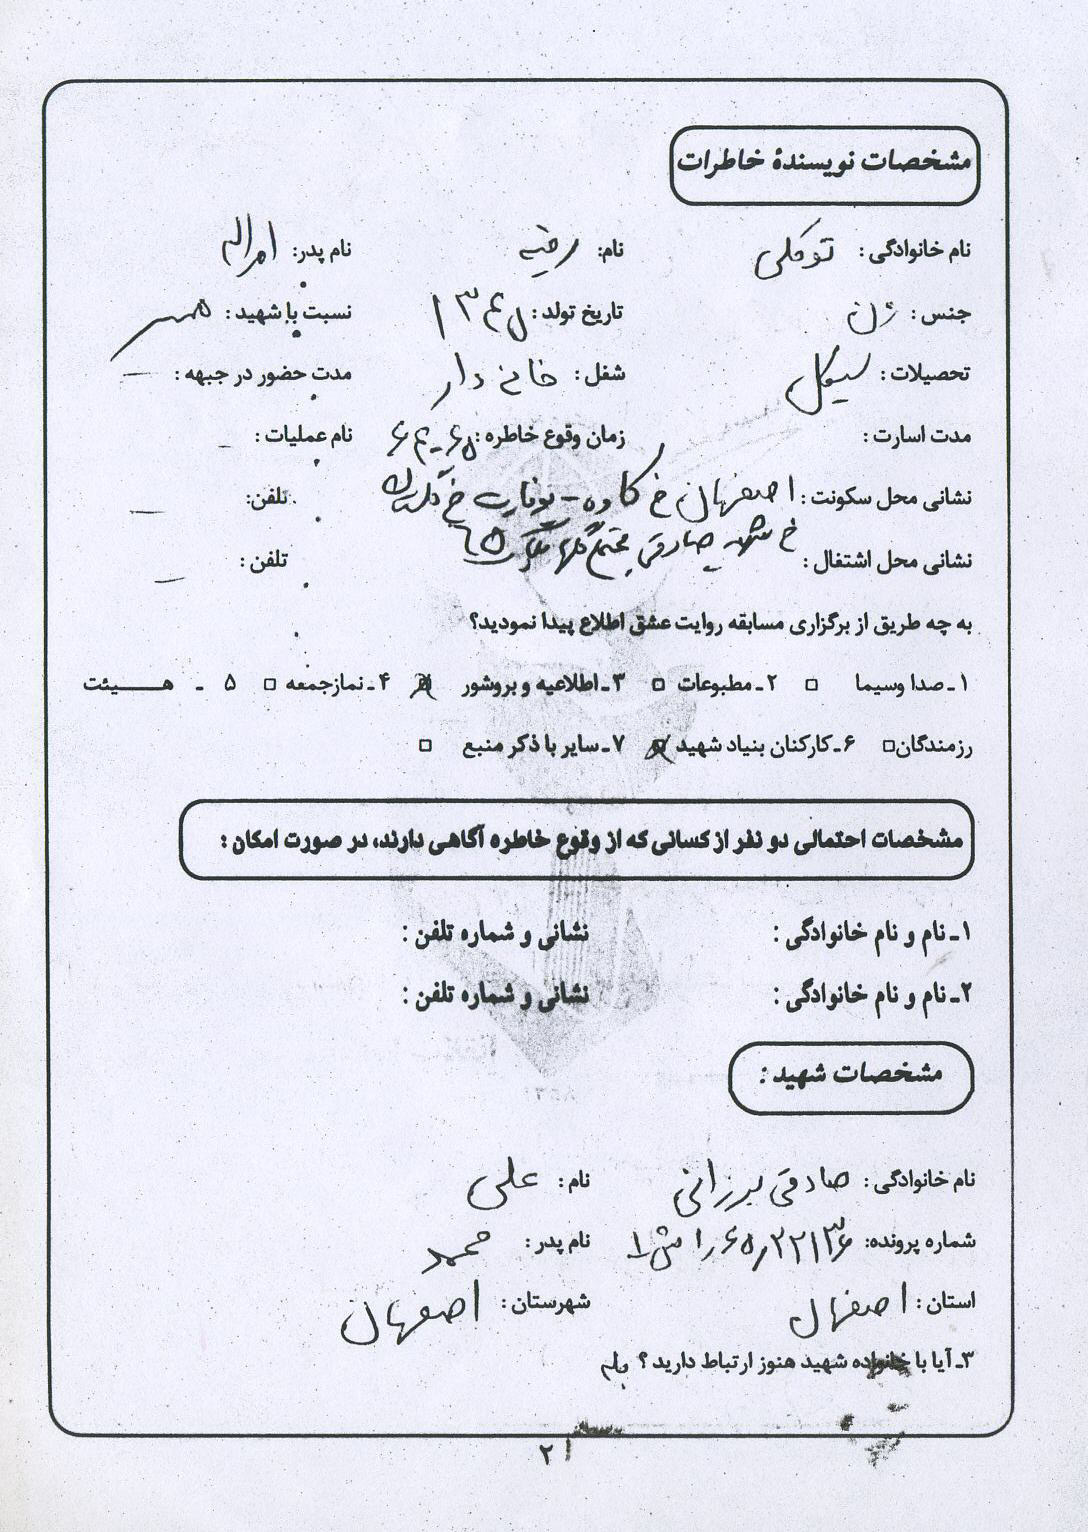 مشخصات نویسندهٔ خاطرات
نام خانوادگی : توکلی نام: رضیه نام پدر: امراله
جنس : زن تاریخ تولد : ۱۳۴۵ نسبت با شهید : همسر
تحصیلات : سیکل شغل : خانه دار مدت حضور در جبهه : —
مدت اسارت : زمان وقوع خاطره : ۶۵-۶۴ نام عملیات : –
نشانی محل سکونت : اصفهان خ کاوه - خ گلستان تلفن: —
خ شهید صادقی مجتمع گلها پلاک
نشانی محل اشتغال : تلفن : —
به چه طریق از برگزاری مسابقه روایت عشق اطلاع پیدا نمودید؟
۱ـ صدا وسیما □ ۲ـ مطبوعات □ ۳ـ اطلاعیه و بروشور ☒ ۴ـ نمازجمعه □ ۵ ـ هـــیئت
رزمندگان □ ۶ـ کارکنان بنیاد شهید ☒ ۷ـ سایر با ذکر منبع □
مشخصات احتمالی دو نفر از کسانی که از وقوع خاطره آگاهی دارند، در صورت امکان :
۱ـ نام و نام خانوادگی : نشانی و شماره تلفن :
۲ـ نام و نام خانوادگی : نشانی و شماره تلفن :
مشخصات شهید :
نام خانوادگی : صادقی برزانی نام : علی
شماره پرونده: نام پدر : محمد
استان : اصفهان شهرستان : اصفهان
۳ـ آیا با خانواده شهید هنوز ارتباط دارید ؟ بله
۲